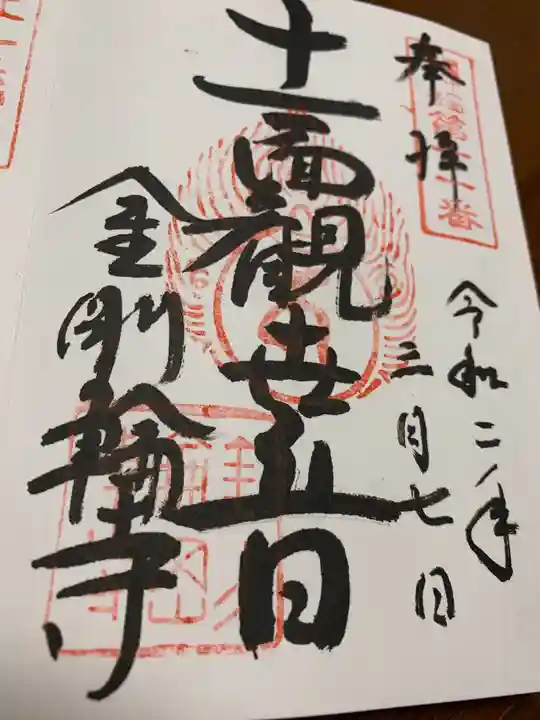 奉拝
令和二年
三月七日
十一面観世音
金剛輪寺